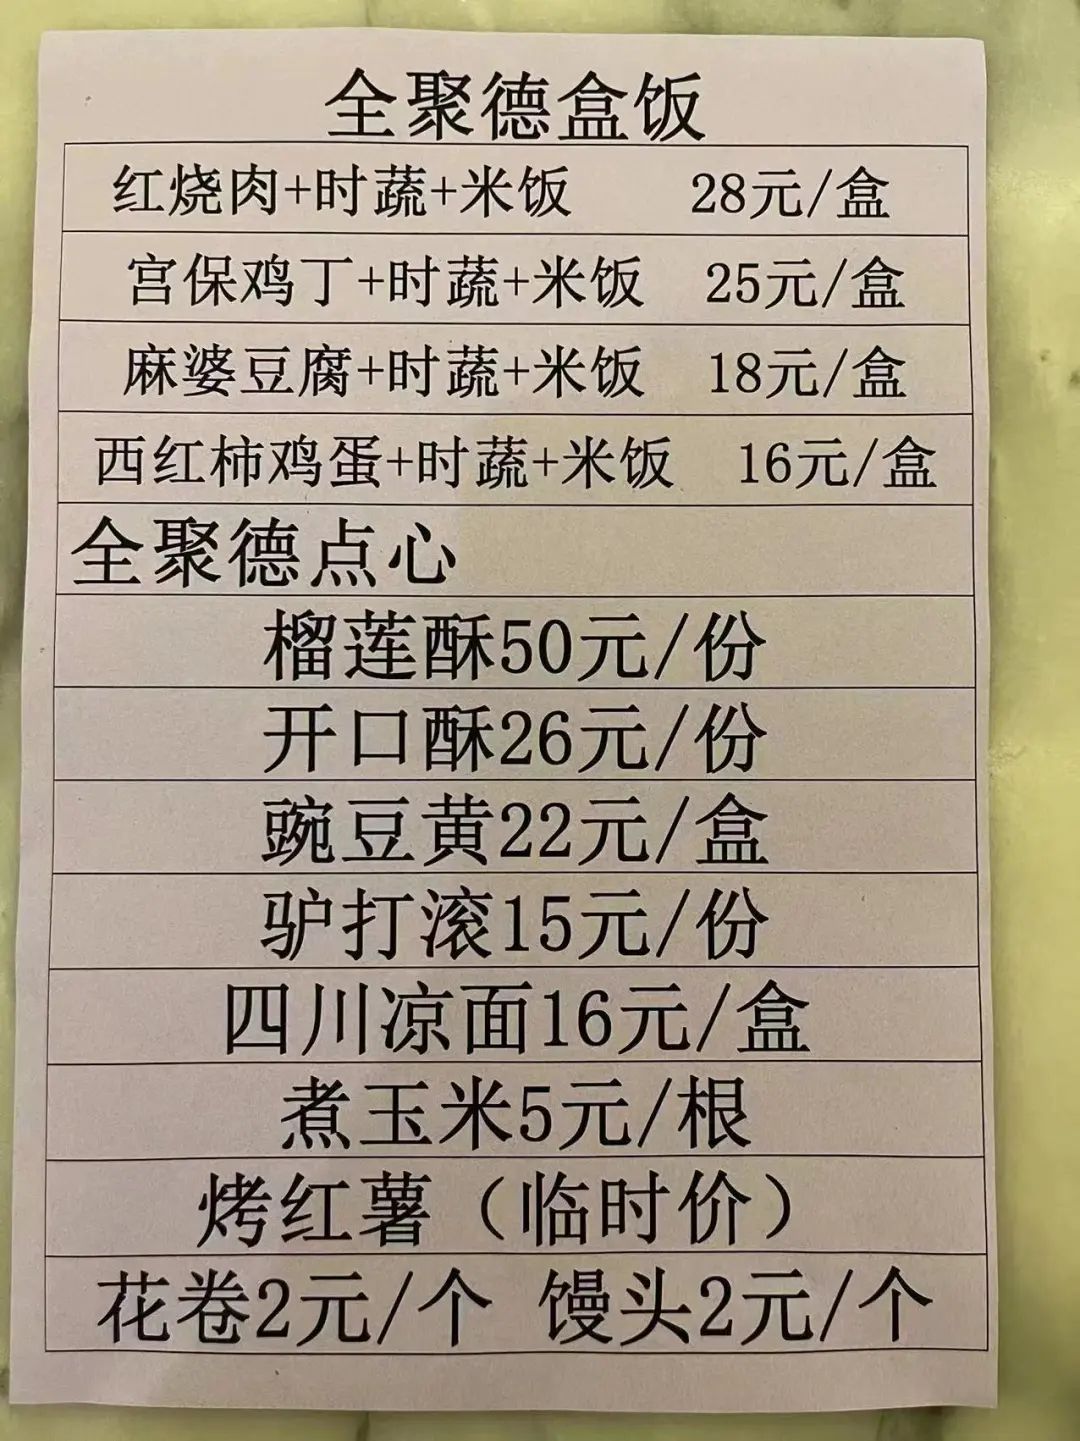 全聚德盒饭
红烧肉+时蔬+米饭 28元/盒
宫保鸡丁+时蔬+米饭 25元/盒
麻婆豆腐+时蔬+米饭 18元/盒
西红柿鸡蛋+时蔬+米饭 16元/盒
全聚德点心
榴莲酥50元/份
开口酥26元/份
豌豆黄22元/盒
驴打滚15元/份
四川凉面16元/盒
煮玉米5元/根
烤红薯（临时价）
花卷2元/个 馒头2元/个